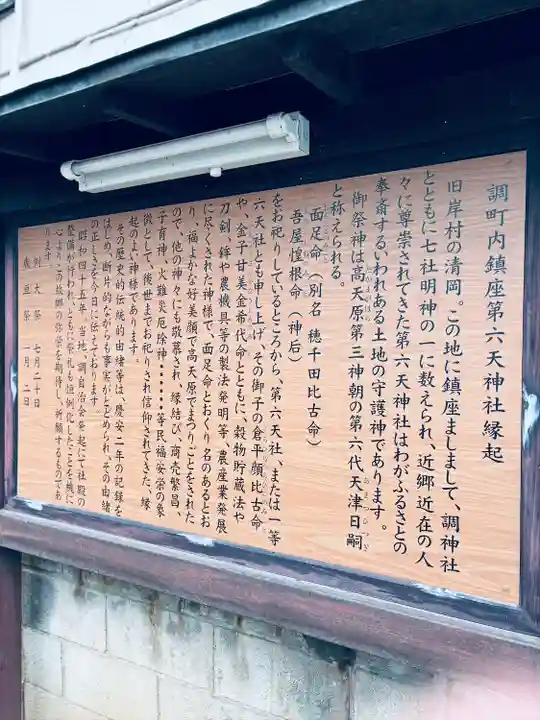 調町内鎮座第六天神社縁起
旧岸村の清岡。この地に鎮座ましまして、調神社
とともに七社明神の一に数えられ、近郷近在の人
々に尊崇されてきた第六天神社はわがふるさとの
奉斎するいわれある土地の守護神であります。
御祭神は高天原第三神朝の第六代天津日嗣
と称えられる。
面足命(別名 穂千田比古命)
吾屋惶根命(神后)
をお祀りしているところから、第六天社、または一等
六天社とも申し上げ、その御子の倉平顔比古命
や、金子甘美金希代命とともに、穀物貯蔵法や
刀剣、鉾や農機具等の製法発明等、農産業発展
に尽くされた神様で、面足命とおくり名のあるとお
り、福よかな好美顔で高天原でまつりごとをされた
ので、他の神々にも敬慕され、縁結び、商売繁昌、
子育神、火難災厄除神・・・・・等民福安栄の象
徴として、後世までお祀りされ信仰されてきた、縁
起のよい神様であります。
その歴史的伝統的由緒等は、慶安二年の記録を
はじめ、断片的ながらも事実がとどめられ、その由緒
の正しさを今日に伝えております。
昭和四十五年、当地、調自治会発起にて社殿の
整備が行われ、ともに祭礼も恒例化したことを機に
心よりこの故郷の弥栄を期待し祈願するものであ
ります
例大祭 七月二十日
歳旦祭 一月二日